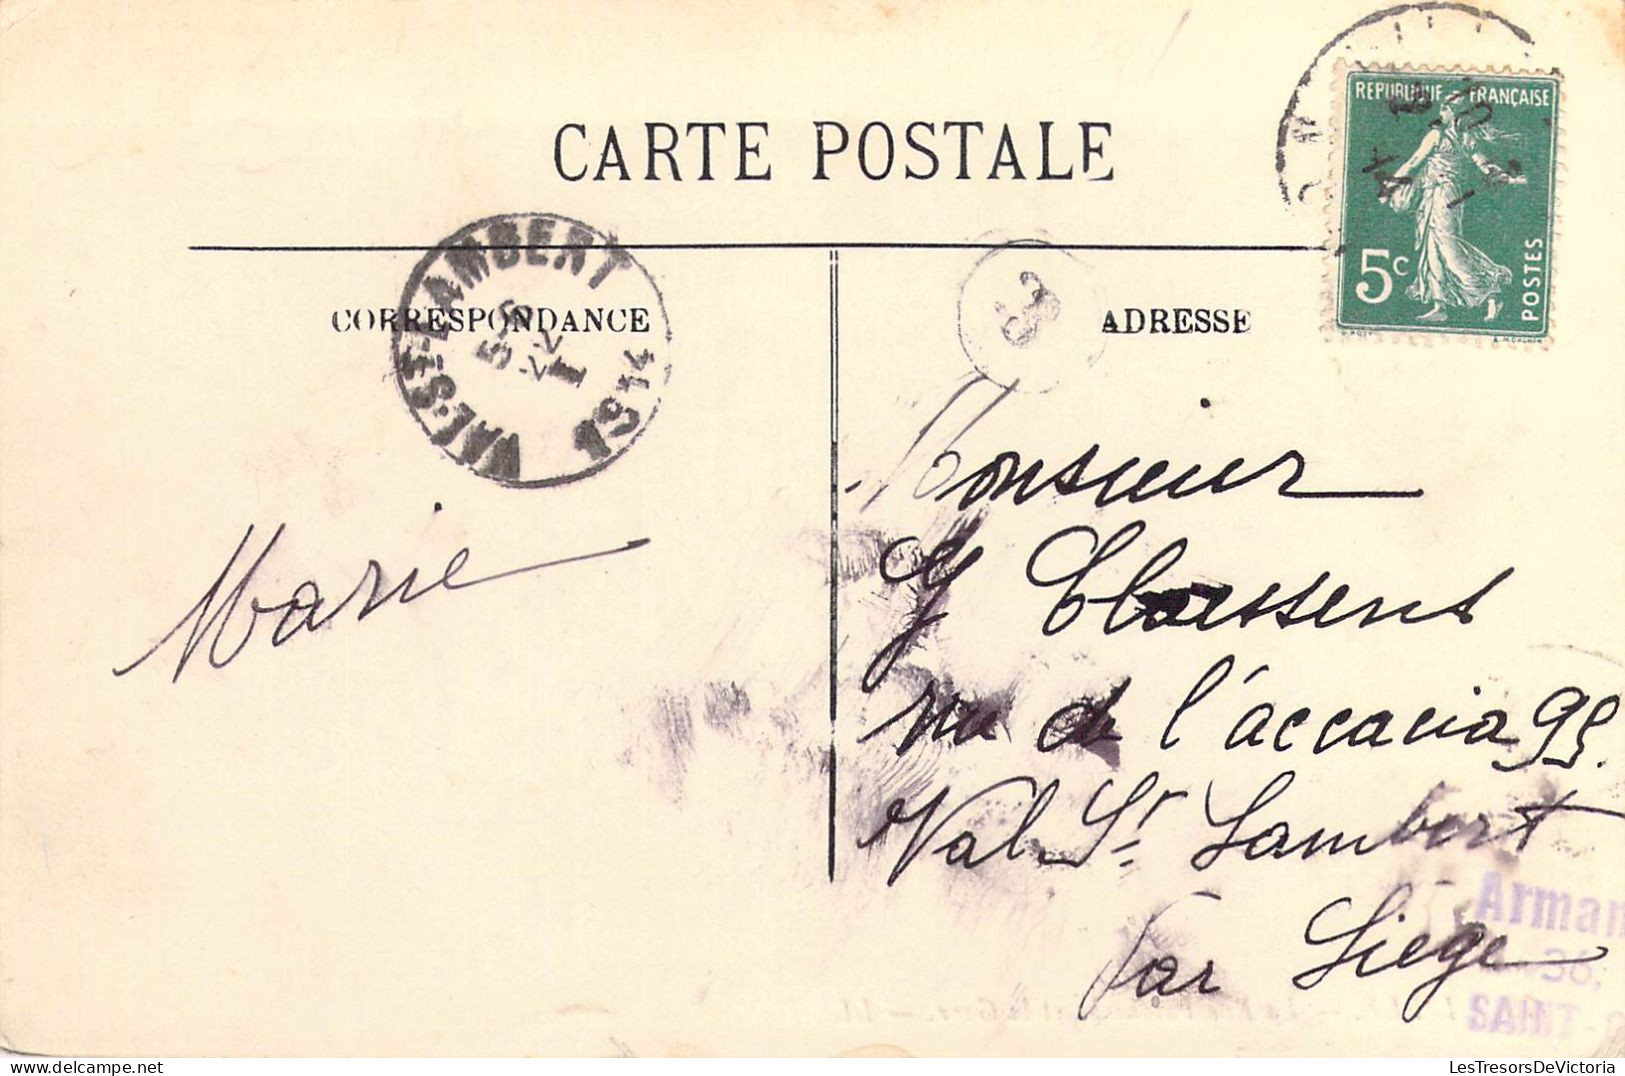 CARTE POSTALE
REPUBLIQUE FRANÇAISE
5c
POSTES
VAL-ST-LAMBERT
5-6
22
I
1914
CORRESPONDANCE
ADRESSE
Marie
Monsieur
J Claessens
rue de l'accacia 95.
Val St Lambert
par Liège
Arman
38,
SAINT-
LesTresorsDeVictoria